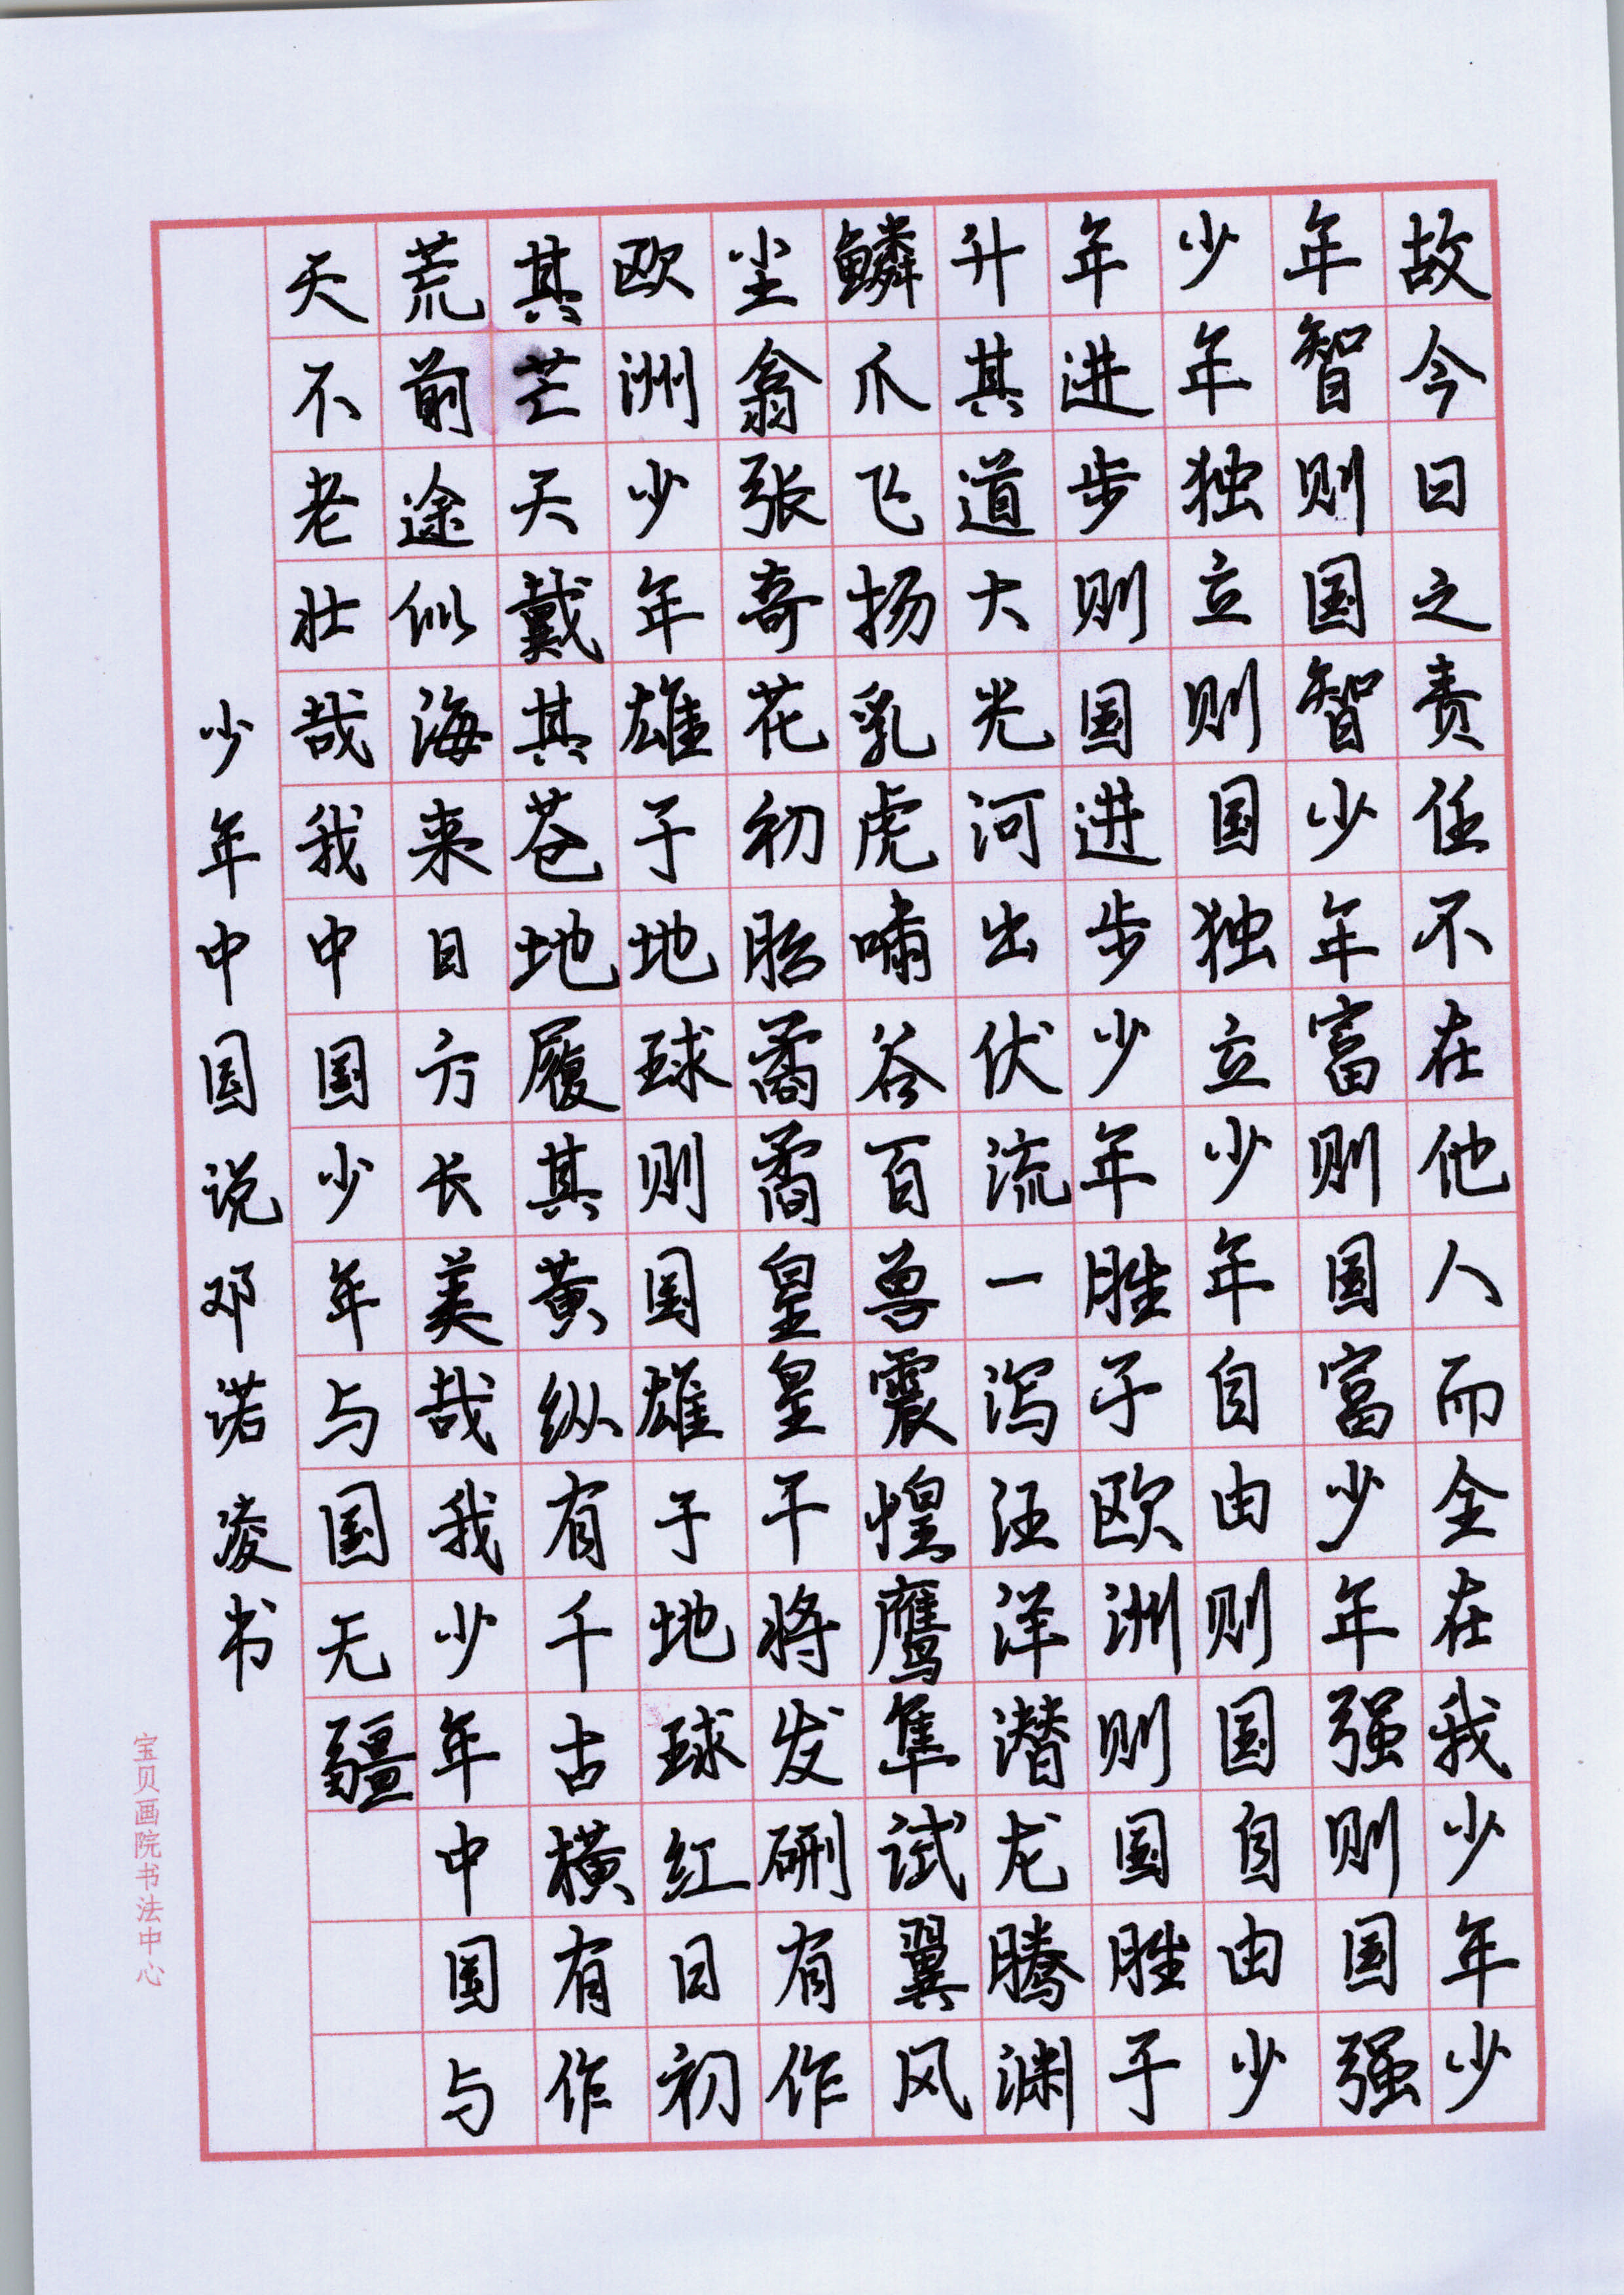 故今日之责任不在他人而全在我少年少
年智则国智少年富则国富少年强则国强
少年独立则国独立少年自由则国自由少
年进步则国进步少年胜于欧洲则国胜于
升其道大光河出伏流一泻汪洋潜龙腾渊
鳞爪飞扬乳虎啸谷百兽震惶鹰隼试翼风
尘翕张奇花初胎矞矞皇皇干将发硎有作
欧洲少年雄于地球则国雄于地球红日初
其芒天戴其苍地履其黄纵有千古横有作
荒前途似海来日方长美哉我少年中国与
天不老壮哉我中国少年与国无疆
少年中国说邓诺凌书
宝贝画院书法中心